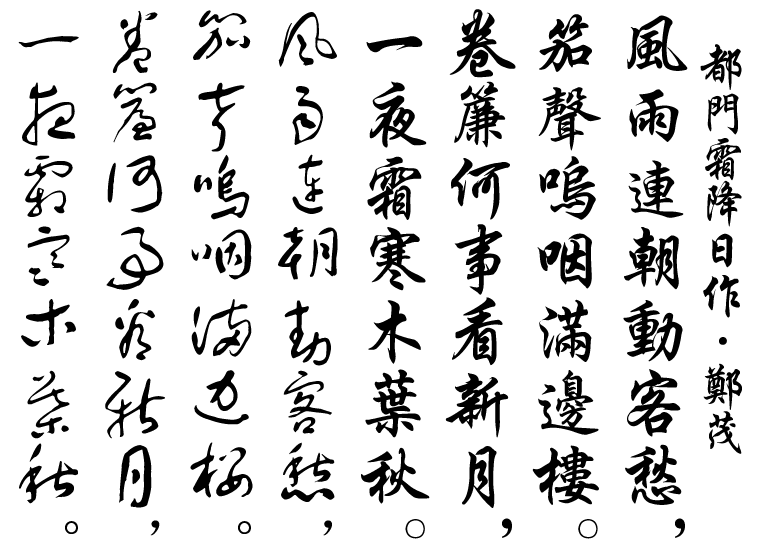 都門霜降日作·鄭茂
風雨連朝動客愁，
笳聲嗚咽滿邊樓。
卷簾何事看新月，
一夜霜寒木葉秋。
風雨連朝動客愁，
笳聲嗚咽滿邊樓。
卷簾何事看新月，
一夜霜寒木葉秋。